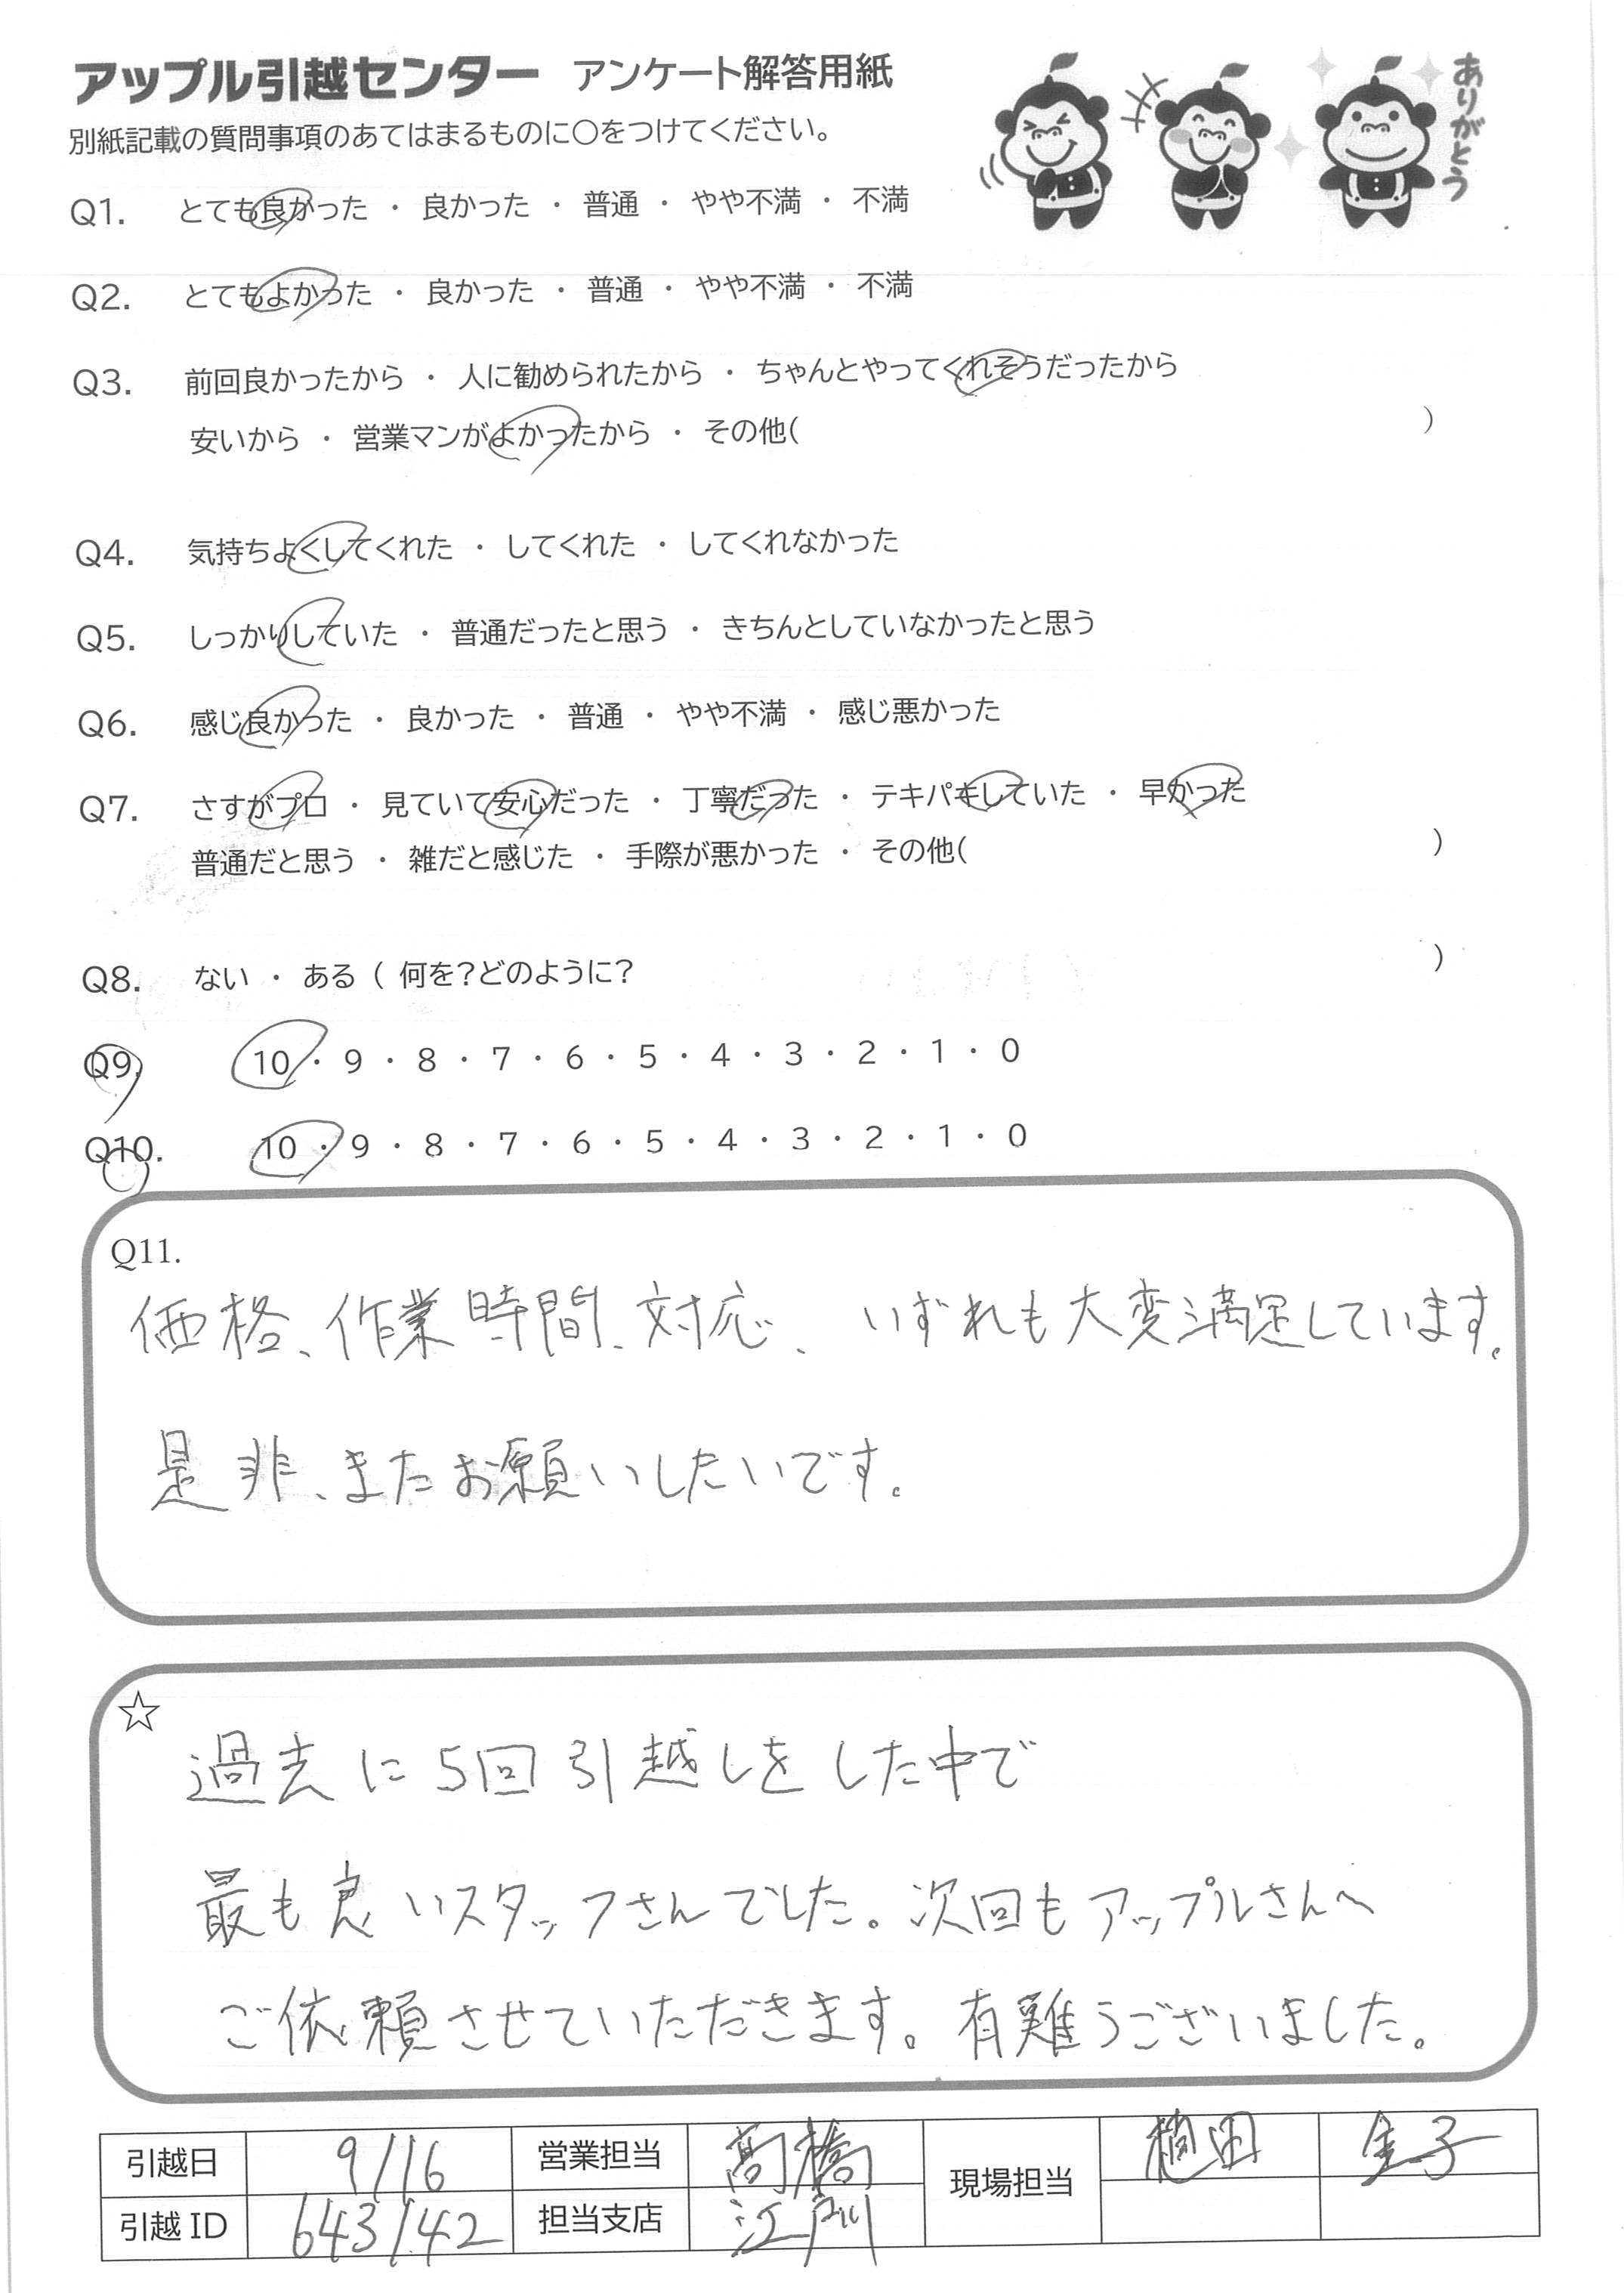 アップル引越センター アンケート解答用紙
ありがとう
別紙記載の質問事項のあてはまるものに○をつけてください。
Q1. とても良かった ・ 良かった ・ 普通 ・ やや不満 ・ 不満
Q2. とてもよかった ・ 良かった ・ 普通 ・ やや不満 ・ 不満
Q3. 前回良かったから ・ 人に勧められたから ・ ちゃんとやってくれそうだったから
安いから ・ 営業マンがよかったから ・ その他( )
Q4. 気持ちよくしてくれた ・ してくれた ・ してくれなかった
Q5. しっかりしていた ・ 普通だったと思う ・ きちんとしていなかったと思う
Q6. 感じ良かった ・ 良かった ・ 普通 ・ やや不満 ・ 感じ悪かった
Q7. さすがプロ ・ 見ていて安心だった ・ 丁寧だった ・ テキパキしていた ・ 早かった
普通だと思う ・ 雑だと感じた ・ 手際が悪かった ・ その他( )
Q8. ない ・ ある ( 何を?どのように? )
Q9. 10 ・ 9 ・ 8 ・ 7 ・ 6 ・ 5 ・ 4 ・ 3 ・ 2 ・ 1 ・ 0
Q10. 10 ・ 9 ・ 8 ・ 7 ・ 6 ・ 5 ・ 4 ・ 3 ・ 2 ・ 1 ・ 0
Q11.
価格、作業時間、対応、いずれも大変満足しています。
是非、またお願いしたいです。
☆
過去に5回引越しをした中で
最も良いスタッフさんでした。次回もアップルさんへ
ご依頼させていただきます。有難うございました。
引越日 9/16 営業担当 髙橋 現場担当 田 金子
引越ID 643142 担当支店 江戸川